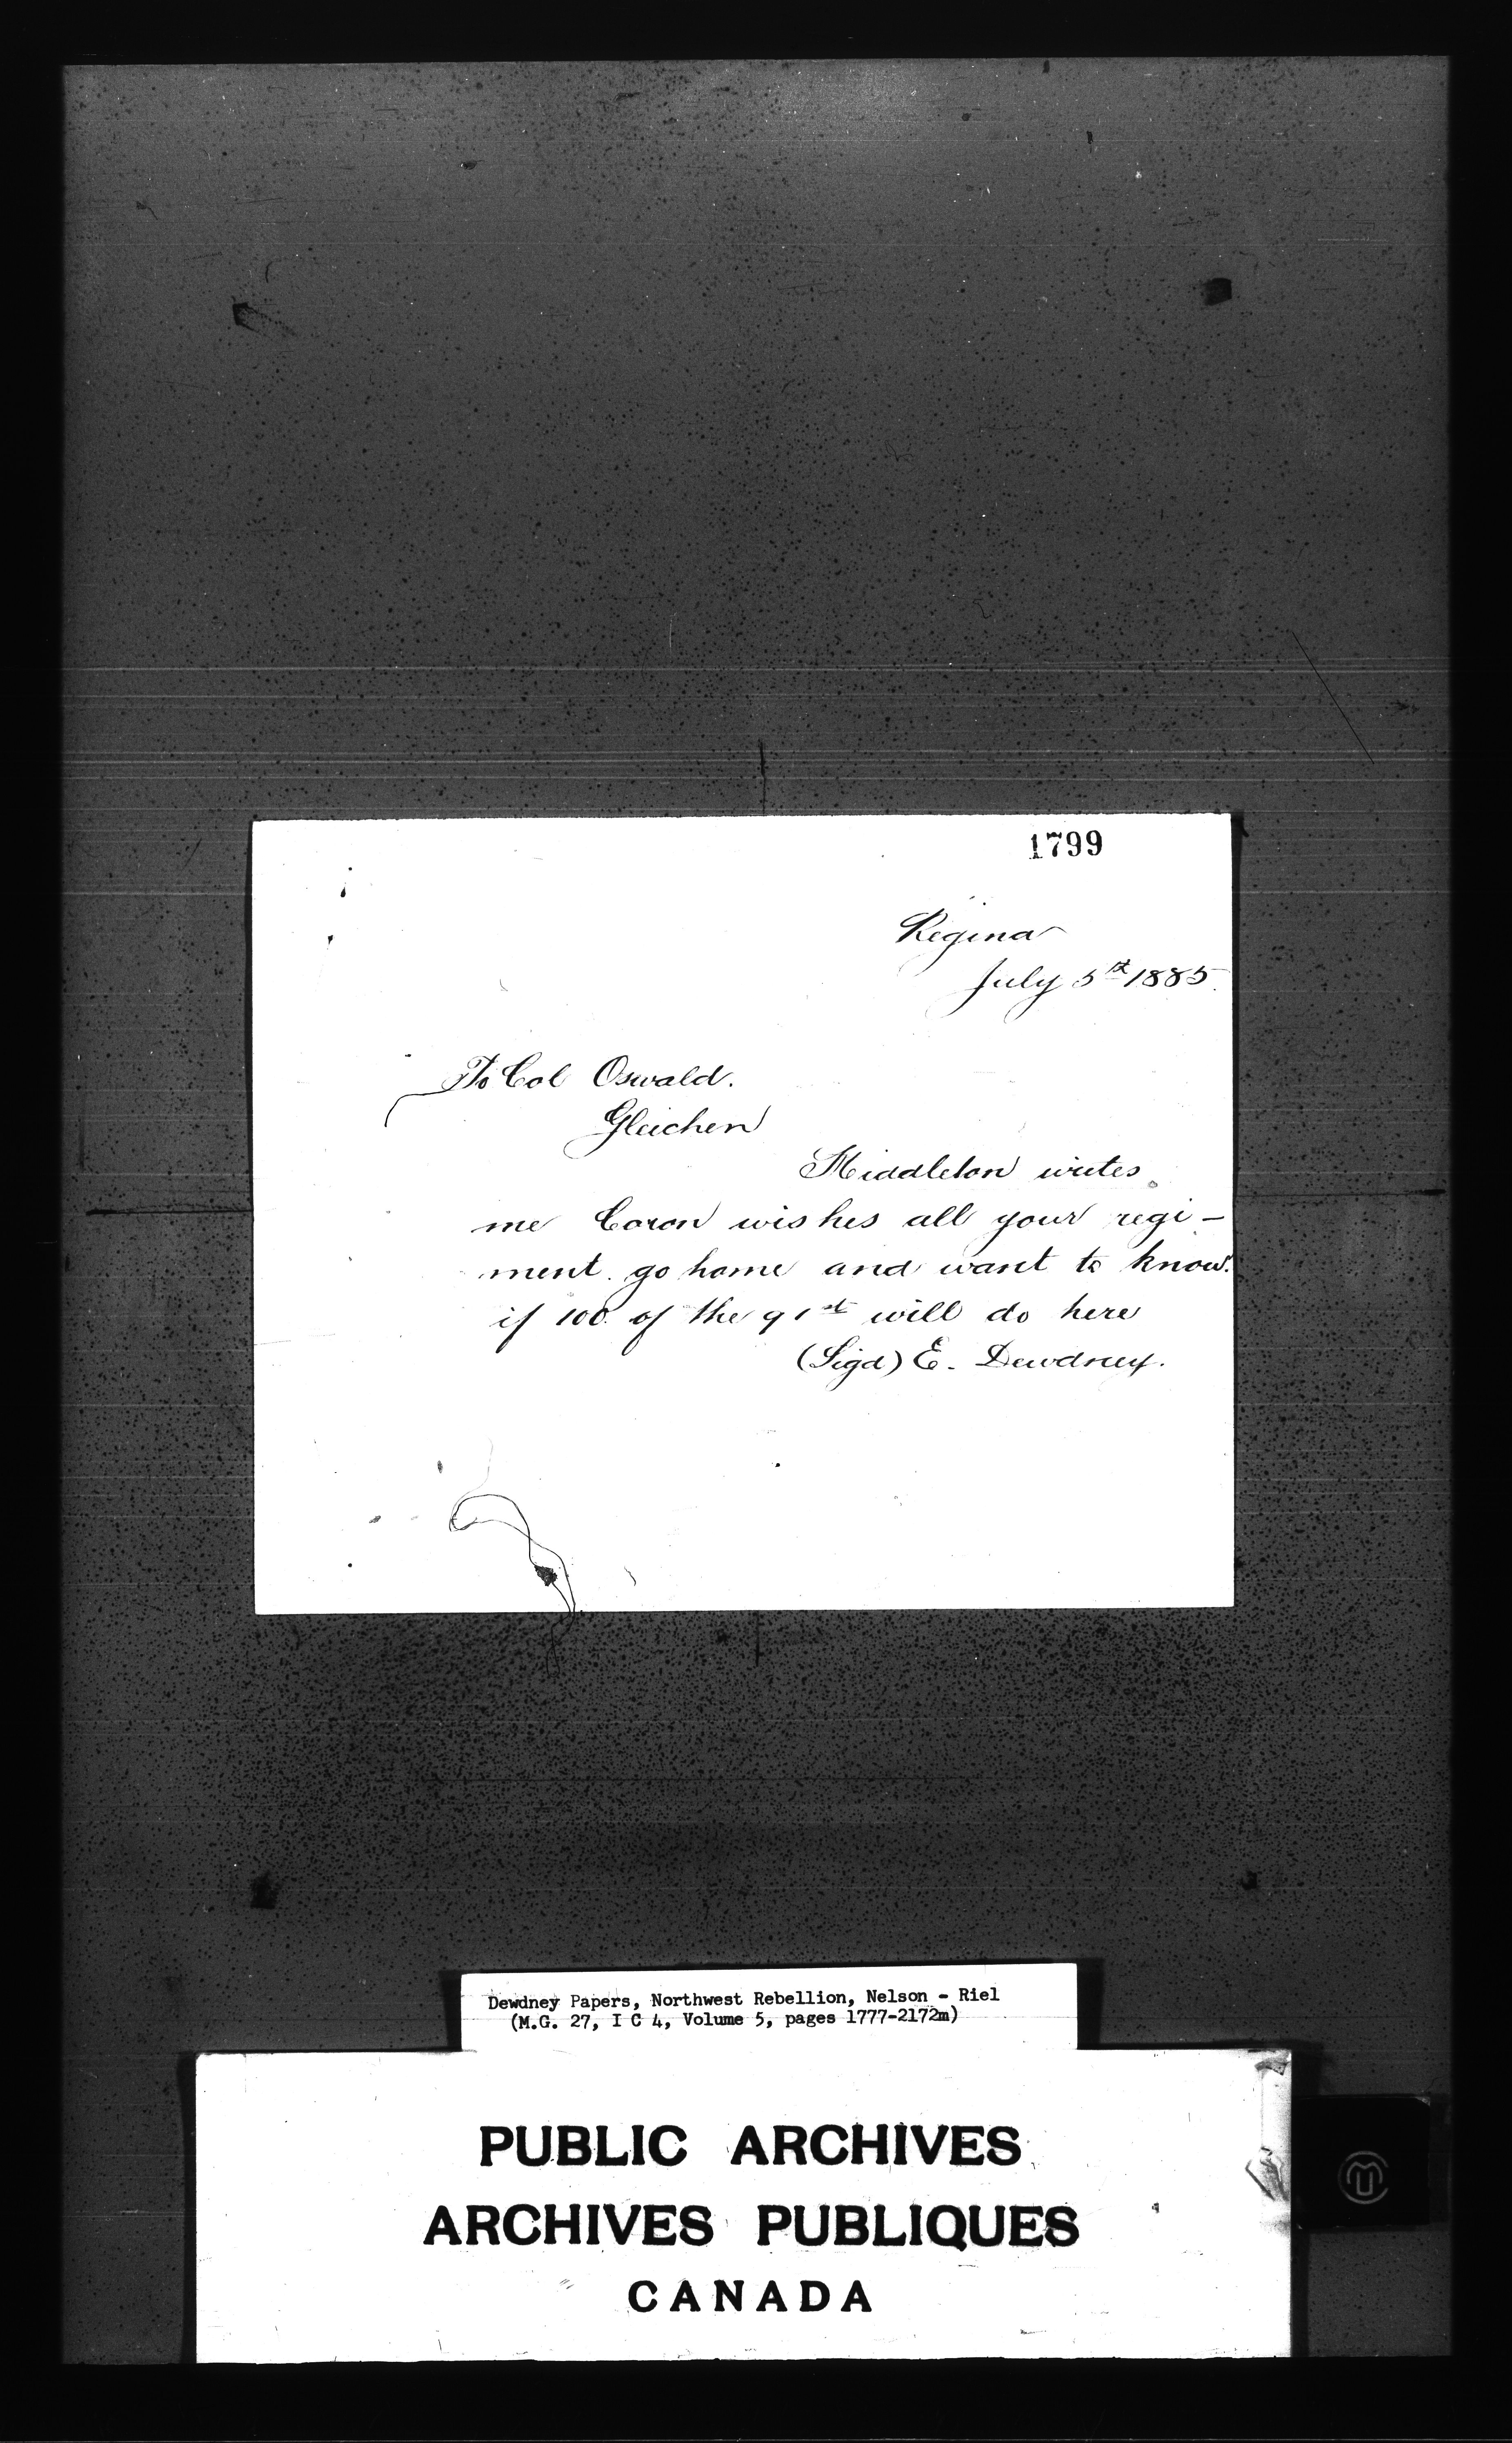 1799
Regina
July 5th 1885.
To Col Oswald.
Gleichen
Middleton writes
me Caron wishes all your regi-
ment go home and want to know
if 100 of the 91st will do here
(Sigd) E. Dewdney.
Dewdney Papers, Northwest Rebellion, Nelson - Riel
(M.G. 27, I C 4, Volume 5, pages 1777-2172m)
PUBLIC ARCHIVES
ARCHIVES PUBLIQUES
CANADA